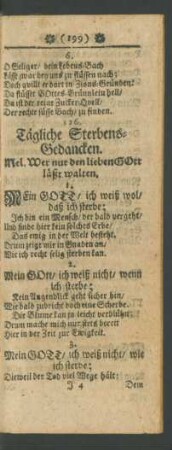 (199)
6.
O Seliger/ dein Lebens-Bach
fleußt zwar bey uns zu Füssen nach;
Doch quillt er dort in Zions-Gründen:
Da fleußt GOttes-Brünnlein hell/
Da ist der reine Zucker-Quell/
Der rechte süsse Bach/ zu finden.
126.
Tägliche Sterbens-
Gedancken.
Mel. Wer nur den lieben GOtt
läßt walten.
1.
Mein GOTT/ ich weiß wol/
daß ich sterbe;
Ich bin ein Mensch/ der bald vergeht/
Und finde hier kein solches Erbe/
Das ewig in der Welt besteht.
Drum zeige mir in Gnaden an/
Wie ich recht selig sterben kan.
2.
Mein GOtt/ ich weiß nicht/ wenn
ich sterbe;
Kein Augenblick geht sicher hin/
Wie bald zubricht doch eine Scherbe.
Die Blume kan ja leicht verblühn:
Drum mache mich nur stets bereit
Hier in der Zeit zur Ewigkeit.
3.
Mein GOTT/ ich weiß nicht/ wie
ich sterbe;
Dieweil der Tod viel Wege hält:
J 4 Dem